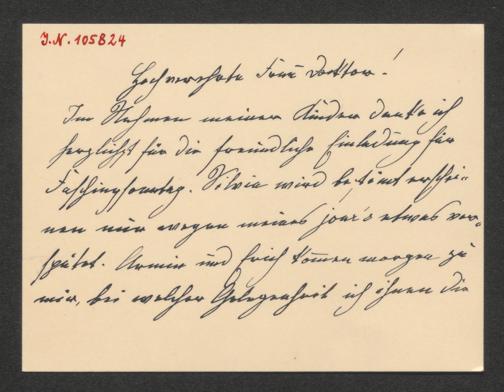 J.N. 105824
Hochverehrte Frau Doktor!
Im Nahmen meiner Kinder danke ich
herzlichst für die freundliche Einladung für
Faschingsonntag. Silvia wird bestimt erschei-
nen nur wegen meines jour's etwas ver-
spätet. Armin und Erich kommen morgen zu
mir, bei welcher Gelegenheit ich ihnen die